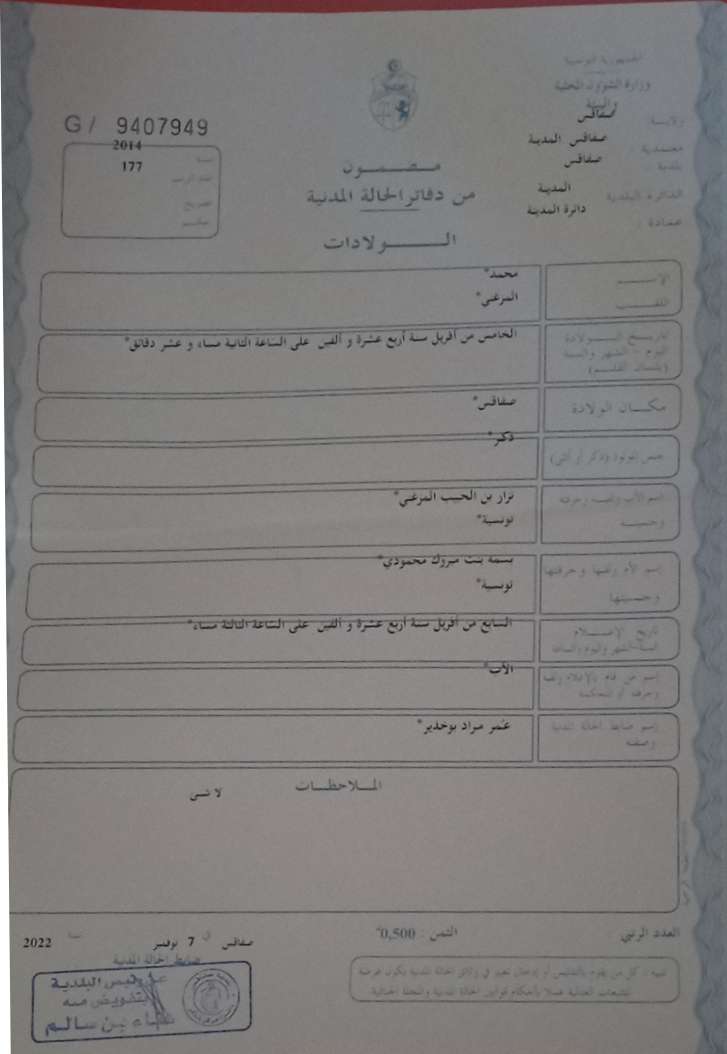 الجمهورية التونسية
وزارة الشؤون المحلية
والبيئة
ولاية: صفاقس
معتمدية : صفاقس المدينة
بلدية : صفاقس
الدائرة البلدية : المدينة
عمادة : دائرة المدينة
G / 9407949
سنة 2014
عدد الرسم 177
تصريح
حكم
مضمون
من دفاتر الحالة المدنية
الولادات
الإسم محمد*
اللقب المرغني*
تاريخ الولادة
اليوم - الشهر والسنة
(بلسان القلم)
الخامس من أفريل سنة أربع عشرة و ألفين على الساعة الثانية مساء و عشر دقائق*
مكان الولادة صفاقس*
جنس المولود (ذكر أو أنثى) ذكر*
إسم الأب ولقبه وحرفته نزار بن الحبيب المرغني*
وجنسيته تونسية*
إسم الأم ولقبها وحرفتها بسمة بنت مبروك محمودي*
وجنسيتها تونسية*
تاريخ الإعلام
السنة-الشهر واليوم والساعة
السابع من أفريل سنة أربع عشرة و ألفين على الساعة الثالثة مساء*
إسم من قام بالإعلام ولقبه
وحرفته أو المحكمة
الأب*
إسم ضابط الحالة المدنية
وصفته
عمر مراد بوخدير*
الملاحظات
لا شئ
العدد الرتبي :
الثمن : 0,500*
صفاقس في 7 نوفمبر سنة 2022
ضابط الحالة المدنية
تنبيه : كل من يقوم بالتدليس أو إدخال تغيير في وثائق الحالة المدنية يكون عرضة
للتتبعات العدلية عملا بأحكام قوانين الحالة المدنية والمجلة الجنائية.
عن رئيس البلدية
بتفويض منه
بن سالم